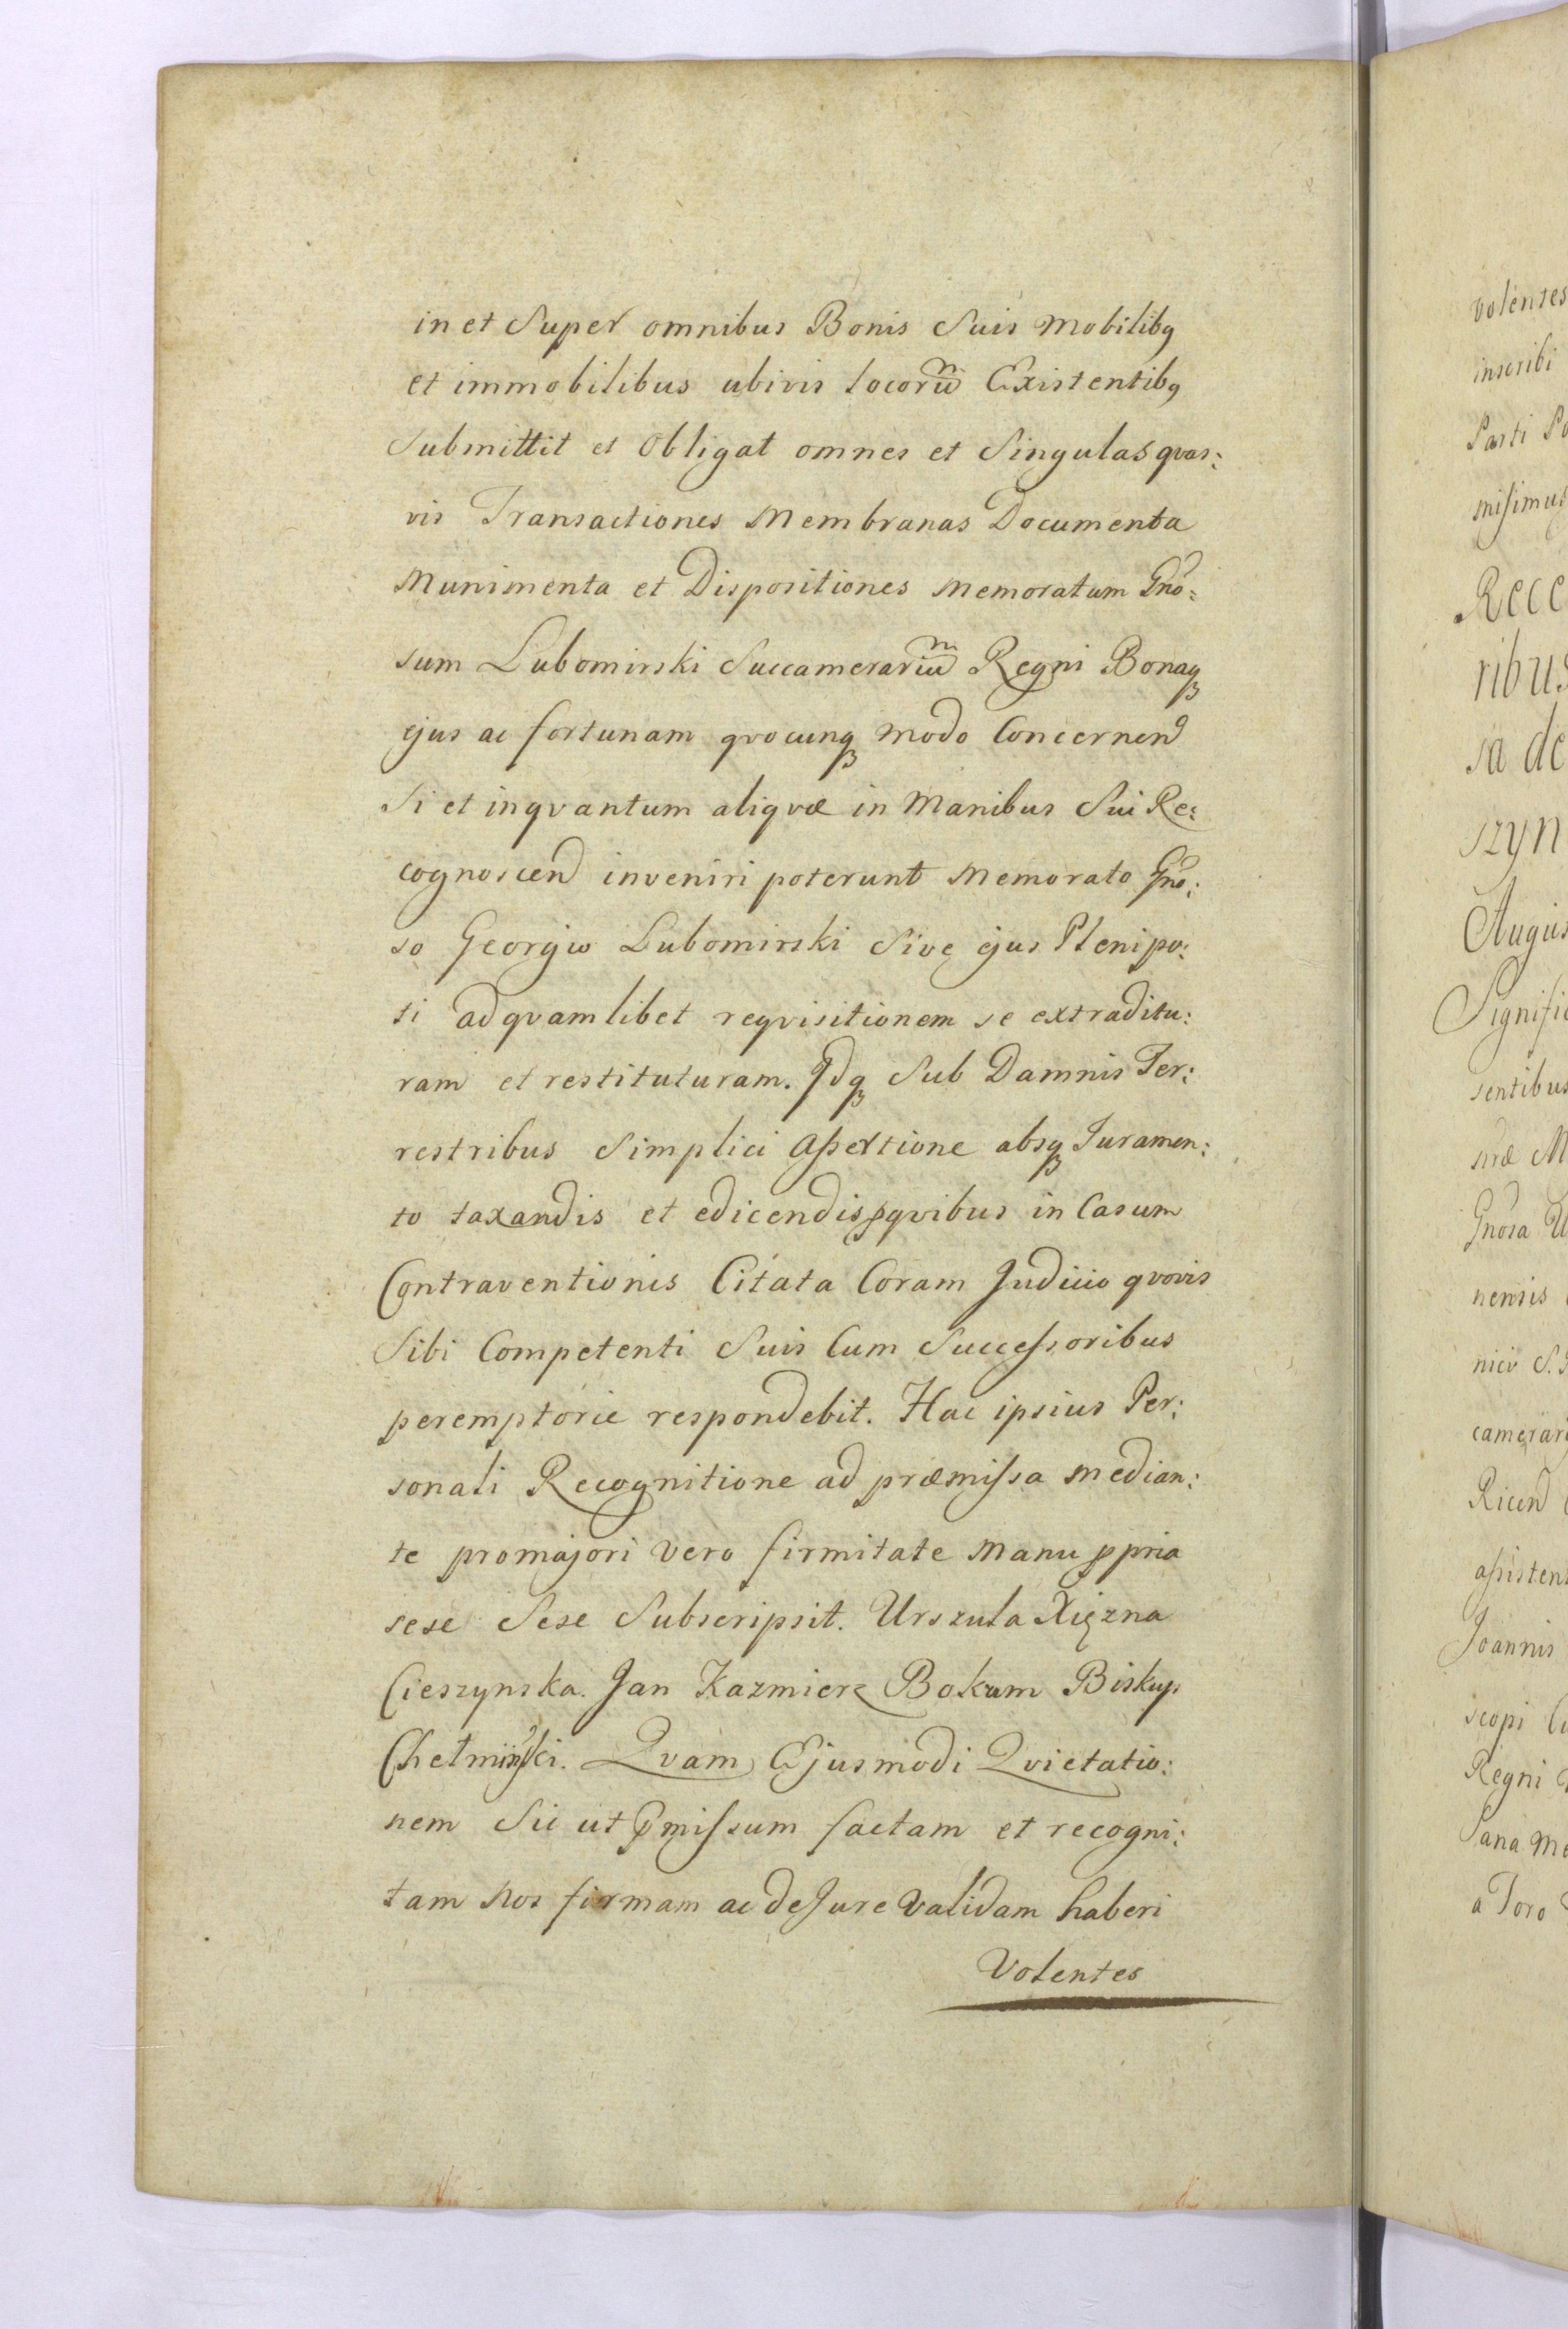 in et Super omnibus Bonis Suis Mobilibq
et immobilibus ubivis locorum Existentibq
Submittit et Obligat omnes et Singulas qvas:
vis Transactiones Membranas Documenta
Munimenta et Dispositiones Memoratum Gno:
sum Lubomirski Succamerarium Regni Bonaq
ejus ac fortunam qvocunq modo Concernend
Si et inqvantum aliqvæ in Manibus Sui Re:
cognoscend inveniri poterunt Memorato Gno:
so Georgio Lubomirski Sive ejus Plenipo:
ti ad qvamlibet reqvisitionem se extraditu:
ram et restituturam. Idq Sub Damnis Ter:
restribus Simplici Aßertione absq Juramen:
to taxandis et edicendis, pqvibus in Casum
Contraventionis Citata Coram Judicio qvovis
Sibi Competenti Suis Cum Succeſsoribus
peremptorie respondebit. Hac ipsius Per:
sonali Recognitione ad præmiſsa median:
te pro majori Vero firmitate Manu ppria
sese Sese Subscripsit. Urszula Xięzna
Cieszynska. Jan Kazmierz Bokum Biskup
Chełmiński. Qvam Ejusmodi Qvietatio:
nem Sic ut pmiſsum factam et recogni:
tam Nos firmam ac de Jure Validam haberi
Volentes
volentes
inscribi
Parti
miſimus
Rece
ribus
sa de
szyn
Augus
Signific
sentibus
Gnosa
nensis
nico S.
camerar
Ricend
aßistent
Joannis
scopi
Regni
Pana
a Toro